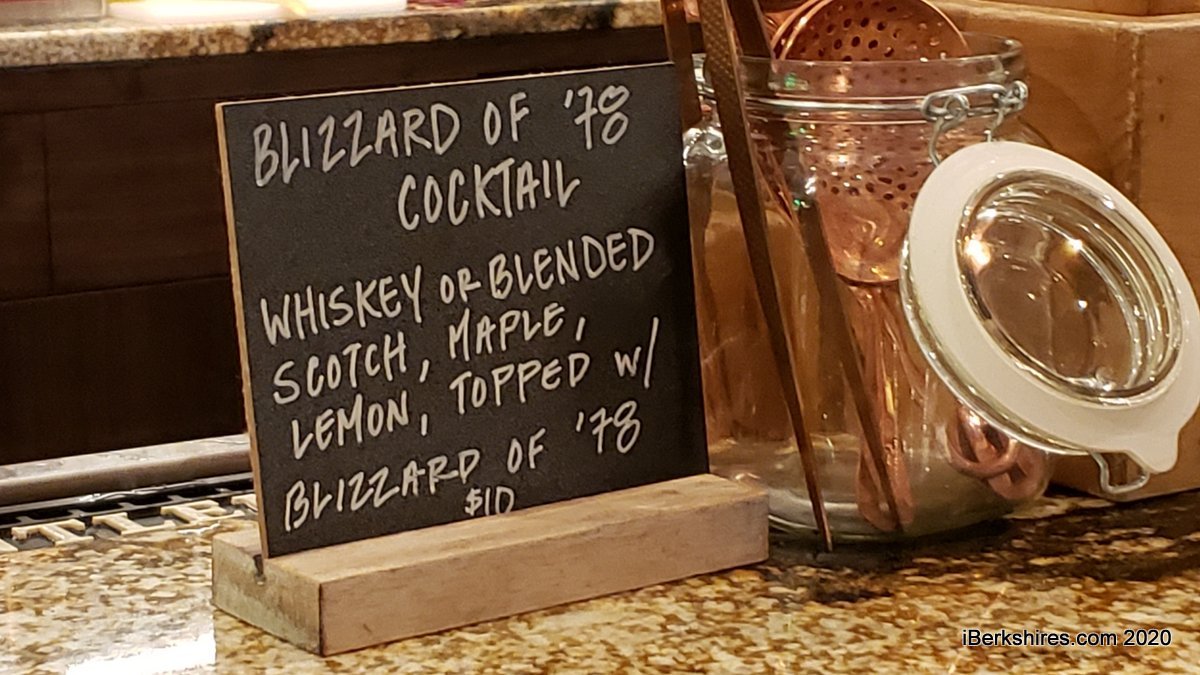 BLIZZARD OF '78
COCKTAIL
WHISKEY OR BLENDED
SCOTCH, MAPLE,
LEMON, TOPPED W/
BLIZZARD OF '78
$10
iBerkshires.com 2020